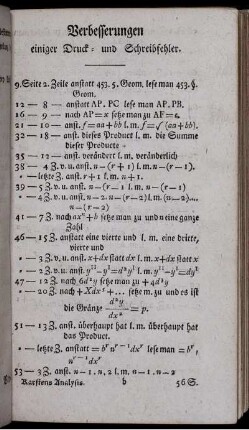 Verbesserungen
einiger Druck- und Schreibfehler.
9. Seite 2. Zeile anstatt 453. 5. Geom. lese man 453. §.
Geom.
12 — 8 — anstatt AP. PC lese man AP. PB.
16 — 9 — nach AP = x setze man zu AF = c.
21 — 10 — anst. f = aa + bb l. m. f = √(aa + bb).
32 — 18 — anst. dieses Product l. m. die Summe
dieser Producte
35 — 12 — anst. verändert l. m. veränderlich
38 — 4 Z. v. u. anst. n — (r + 1) l. m. n — (r — 1).
— letzte Z. anst. r + 1 l. m. n + 1.
39 — 5 Z. v. u. anst. n — (r — 1 l. m. n — (r — 1)
— 4 Z. v. u. anst. n — 2. n — (r — 2) l. m. (n — 2)...
n — (r — 2)
41 — 7 Z. nach axⁿ + b setze man zu und n eine ganze
Zahl
46 — 15 Z. anstatt eine vierte und l. m. eine dritte,
vierte und
— 3 Z. v. u. anst. x + dx statt dx l. m. x + dx statt x
— 2 Z. v. u. anst.
47 — 12 Z. nach 6d⁴y setze man zu + 4d⁴y
— 20 Z. nach + Xdxʳ + ... setze m. zu und es ist
die Gränze
51 — 13 Z. anst. überhaupt hat l. m. überhaupt hat
das Product.
— letzte Z. anstatt = bʳ uʳ⁻¹ dxʳ lese man = bʳ,
53 — 3 Z. anst. n — 1. n, 2 l. m. n — 1. n — 2
Karstens Analysis. b 56 S.